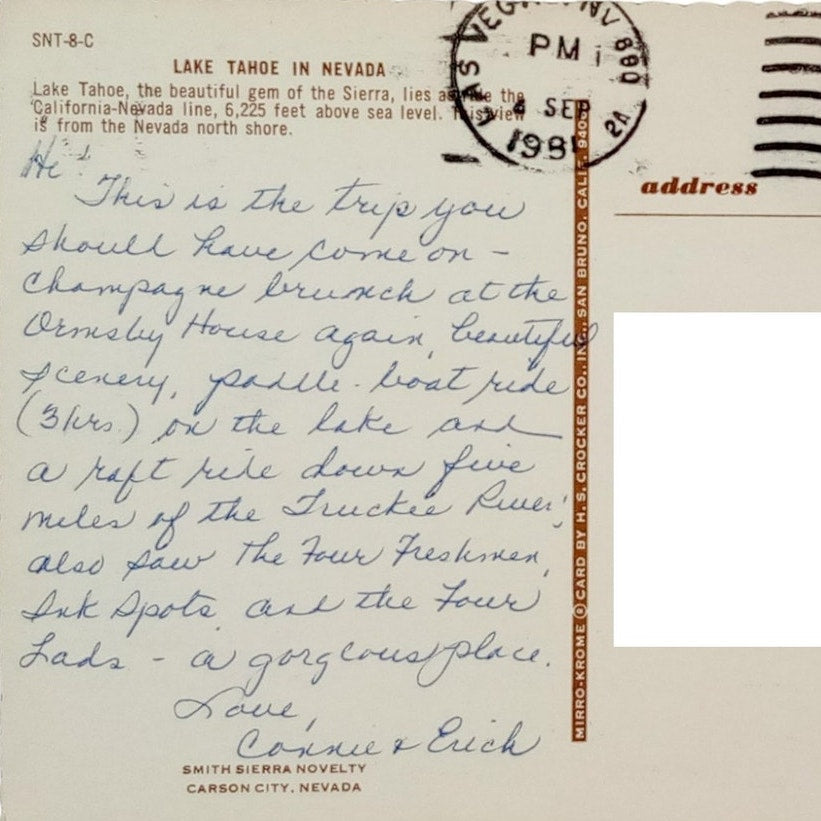 SNT-8-C
LAKE TAHOE IN NEVADA
Lake Tahoe, the beautiful gem of the Sierra, lies astride the
California-Nevada line, 6,225 feet above sea level. This view
is from the Nevada north shore.
Hi!
This is the trip you
should have come on -
champagne brunch at the
Ormsby House again, beautiful
scenery, paddle-boat ride
(3 hrs.) on the lake and
a raft ride down five
miles of the Truckee River;
also saw the Four Freshmen,
Ink Spots and the Four
Lads - a gorgeous place.
Love,
Connie & Erich
SMITH SIERRA NOVELTY
CARSON CITY, NEVADA
MIRRO-KROME ® CARD BY H.S. CROCKER CO., INC., SAN BRUNO, CALIF.
LAS VEGAS NV 890
PM
SEP
1981
2A
address